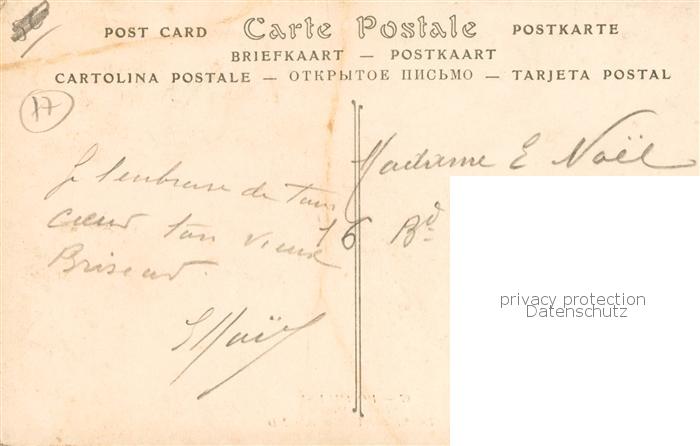 POST CARD Carte Postale POSTKARTE
BRIEFKAART — POSTKAART
CARTOLINA POSTALE — ОТКРЫТОЕ ПИСЬМО — TARJETA POSTAL
17
Je t'embrasse de tout
coeur ton vieux
ENoël
Madame E Noël
16 Bd
privacy protection
Datenschutz